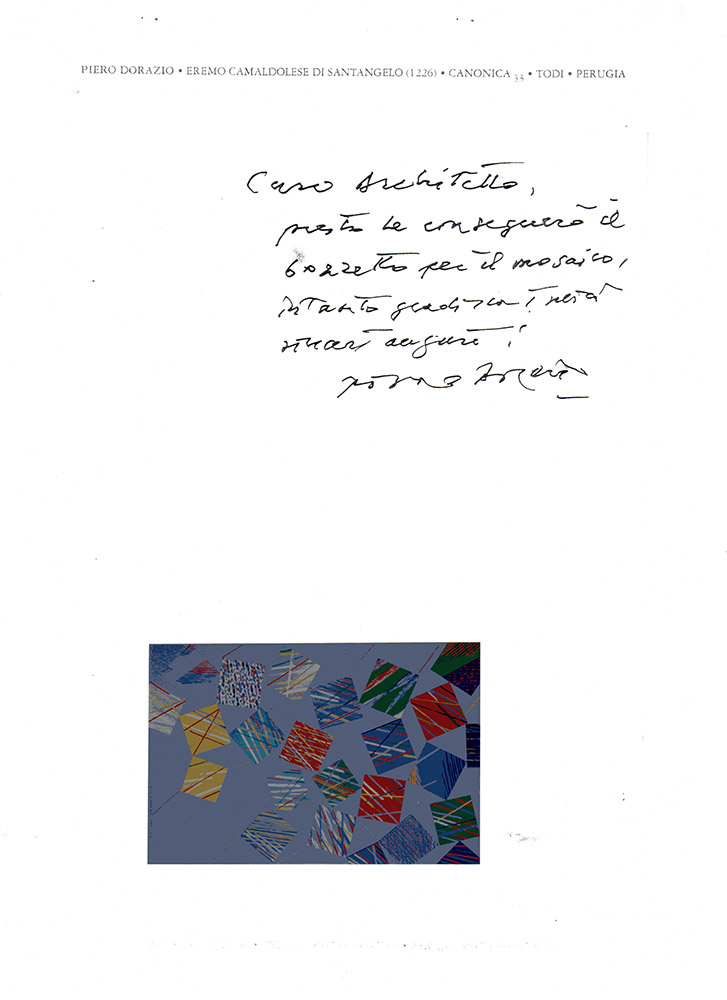 PIERO DORAZIO • EREMO CAMALDOLESE DI SANTANGELO (1226) • CANONICA 33 • TODI • PERUGIA
Caro Architetto,
presto Le consegnerò il
bozzetto per il mosaico,
intanto gradisca i miei
auguri!
Piero Dorazio